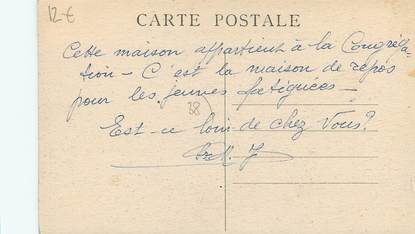 12 €
CARTE POSTALE
Cette maison appartient à la Congréga-
tion - C'est la maison de repos
pour les jeunes fatiguées -
38
Est-ce loin de chez Vous?